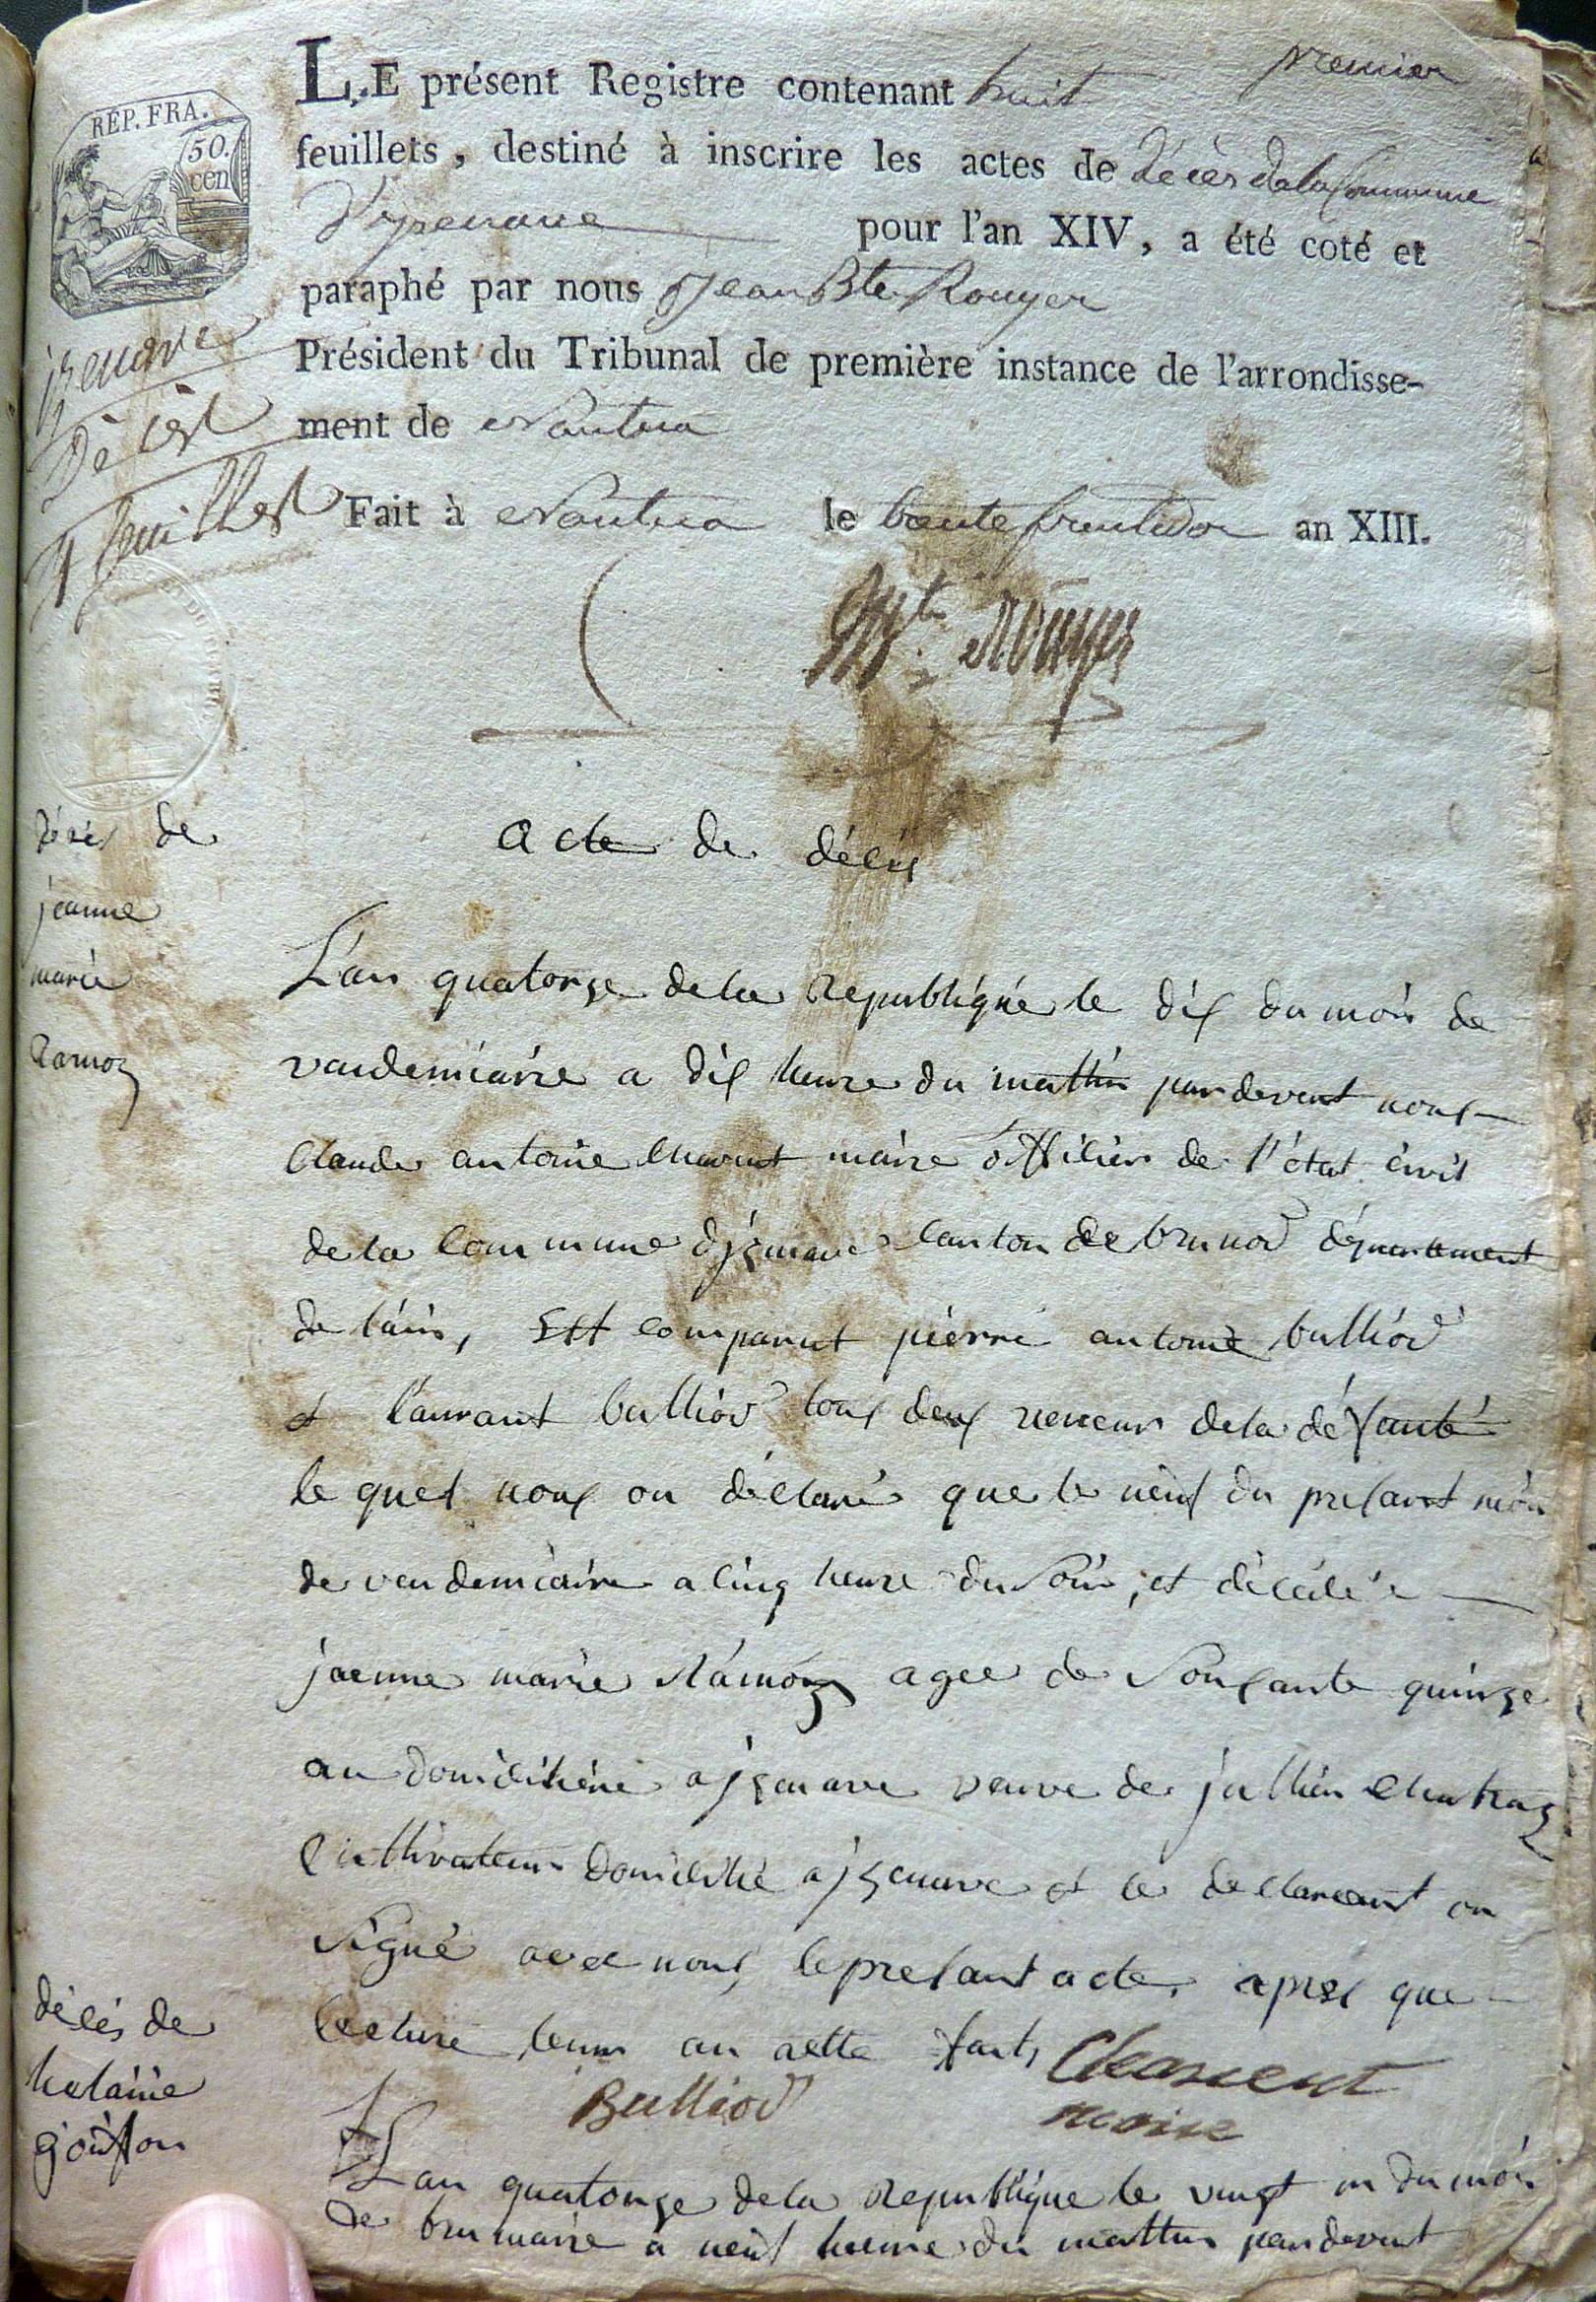 premier
LE présent Registre contenant huit
feuillets, destiné à inscrire les actes de décès de la Commune
d'yzenave pour l'an XIV, a été coté et
paraphé par nous Jean Bte Rouyer
Président du Tribunal de première instance de l'arrondisse-
ment de Nantua
Fait à Nantua le trente fructidor an XIII.
RÉP. FRA.
50.
cen
izenave
Décès
feuillets
Bte Rouyer
acte de décès
décès de
jeanne
marie
Ramoz
L'an quatorze de la Republique le dix du mois de
vandemiaire a dix heure du mattin pardevant nous
Claude antoine maire officier de l'état civil
de la commune d'jzenave canton de brenod département
de l'ain, est comparut pierre antoine bulliod
et laurant bulliod tous deux neveur de la défante
le quel nous on déclaré que le neuf du presant mois
de vendemiaire a cinq heure du soir, et décédée
jaenne marie Ramoz agee de soixante quinze
an domiciliéne a jzenave veuve de jullien chatraz
cultivateur domicilié a jzenave et le declareant on
signé avec nous le presant acte, apres que
lecture leur an aetté fait,
Bulliod
maire
décés de
helaine
goiffon
L'an quatorze de la Republique le vingt un du mois
de brumaire a neuf heure du mattin pardevant